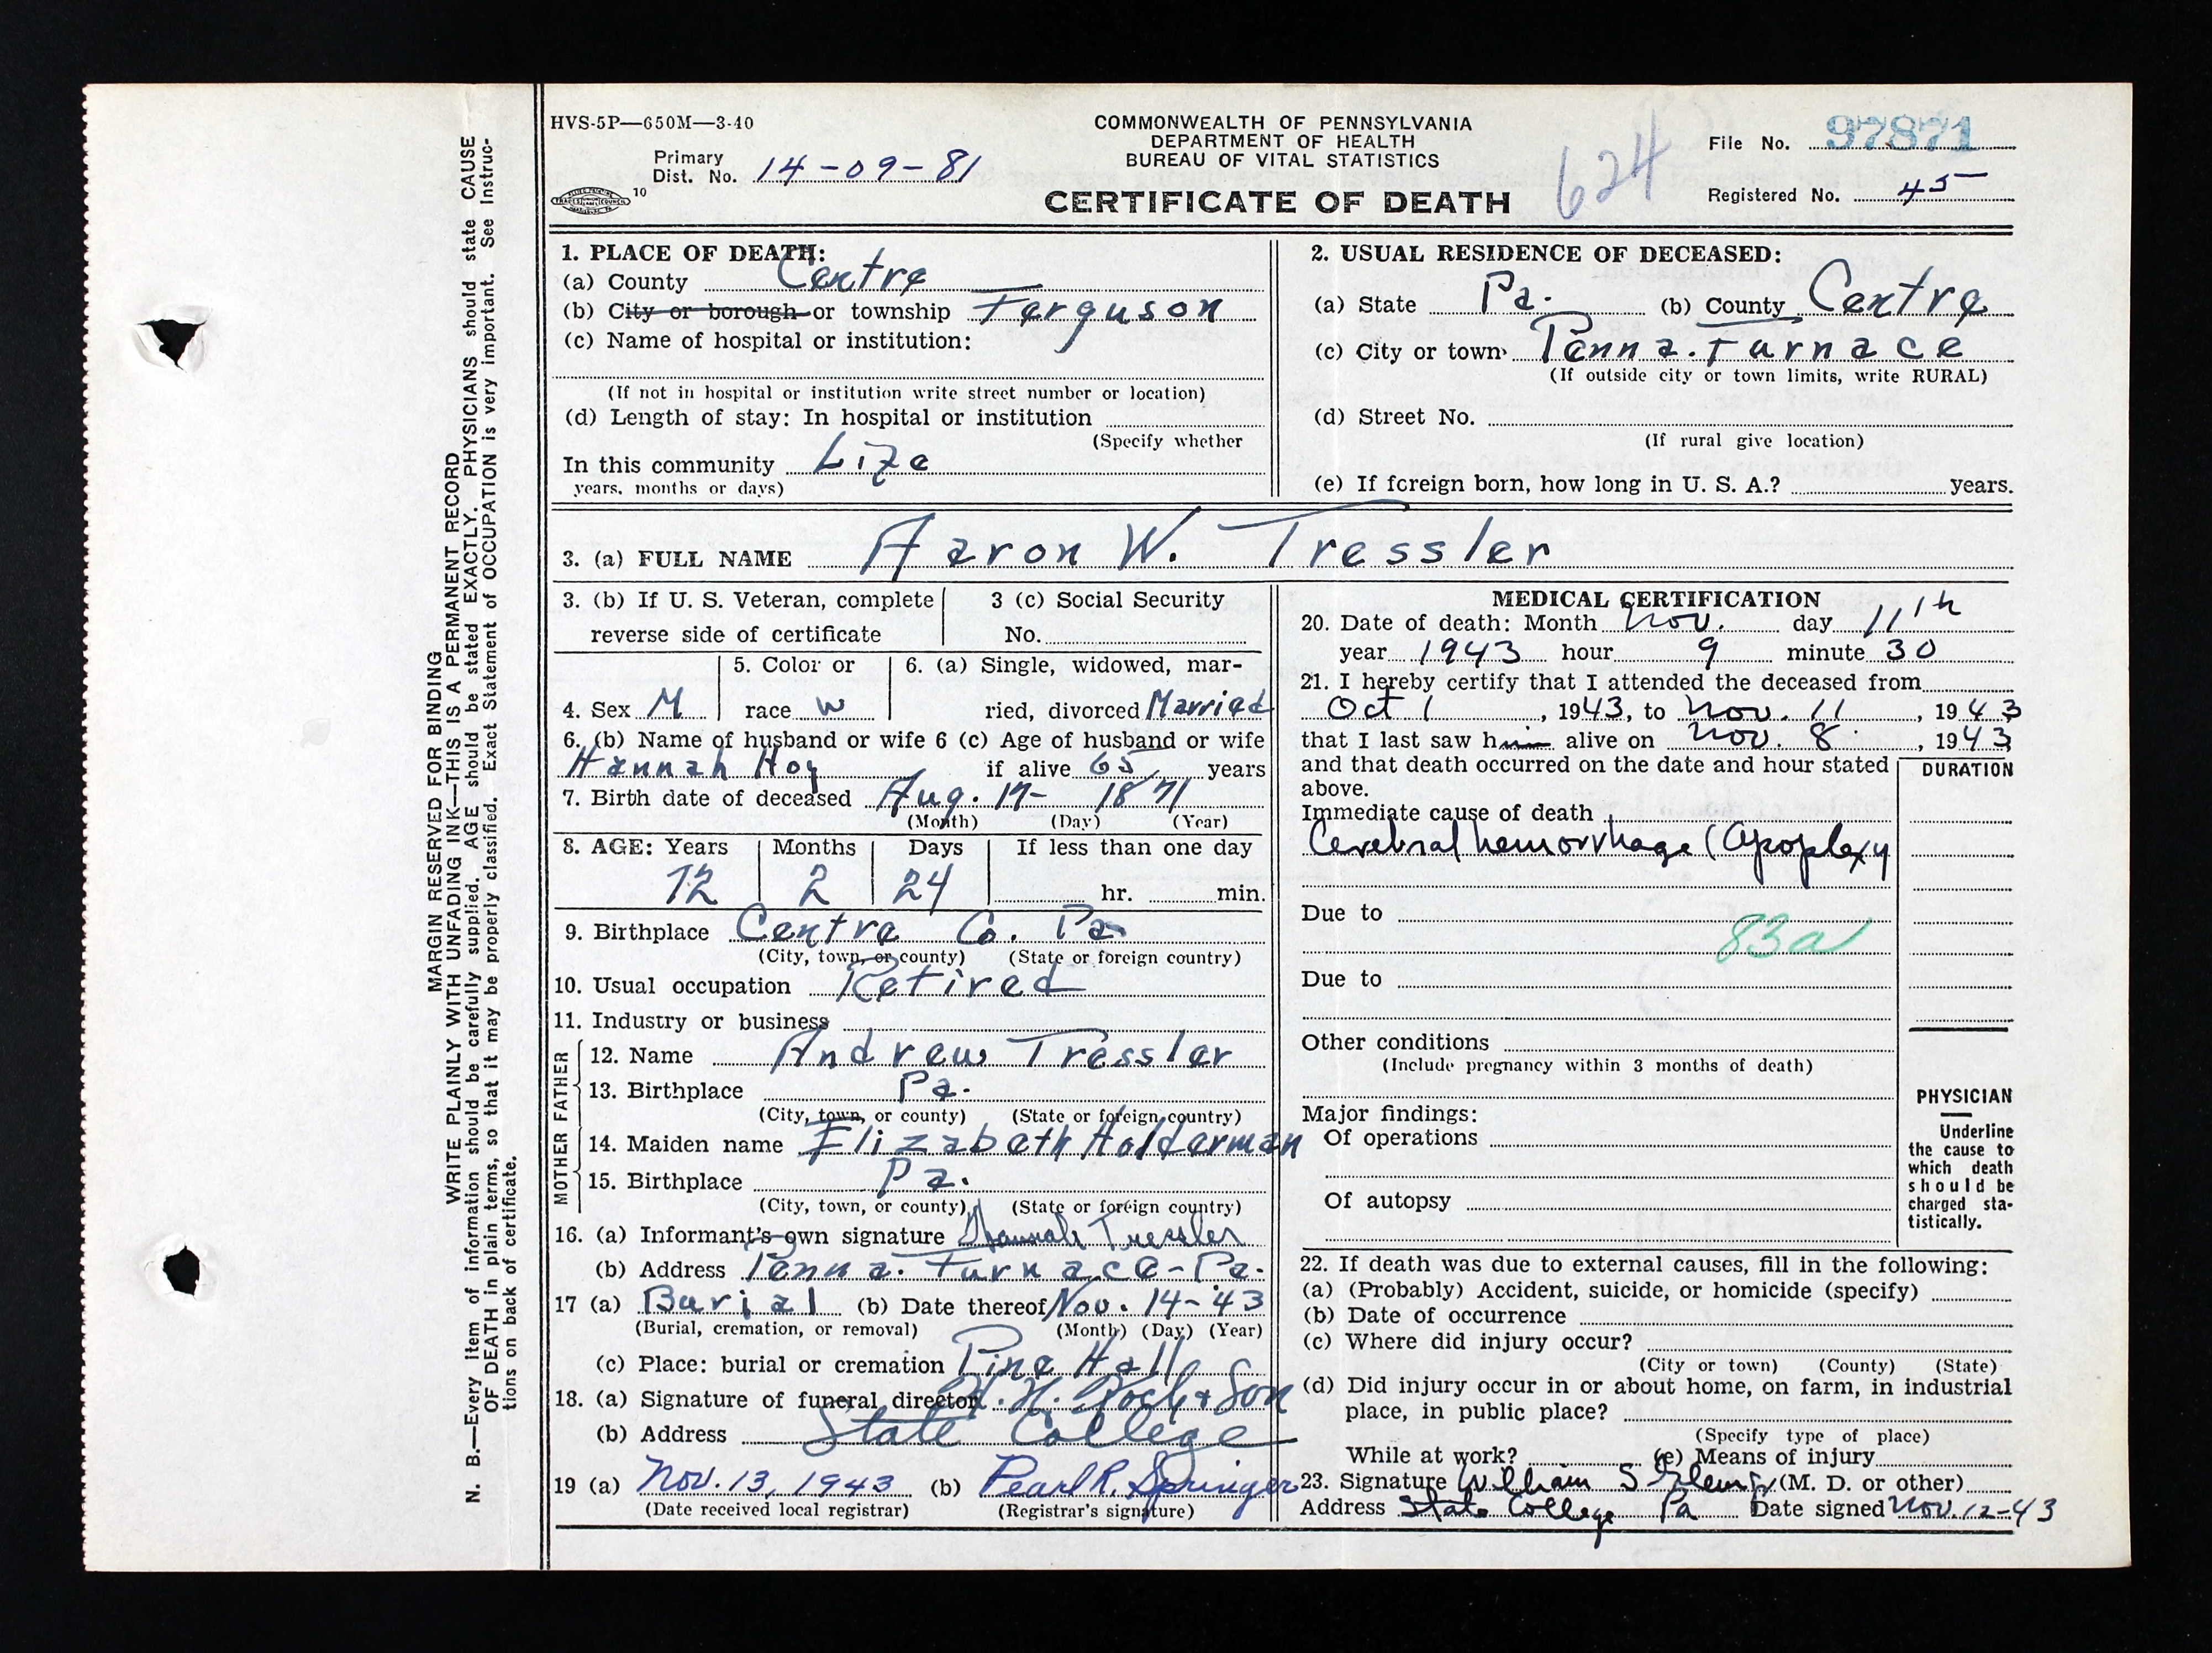 HVS-5P—650M—3-40
COMMONWEALTH OF PENNSYLVANIA
DEPARTMENT OF HEALTH
BUREAU OF VITAL STATISTICS
CERTIFICATE OF DEATH
Primary
Dist. No. 14-09-81
10
624
File No. 97871
Registered No. 45
MARGIN RESERVED FOR BINDING
WRITE PLAINLY WITH UNFADING INK—THIS IS A PERMANENT RECORD
N. B.—Every item of information should be carefully supplied. AGE should be stated EXACTLY. PHYSICIANS should state CAUSE
OF DEATH in plain terms, so that it may be properly classified. Exact Statement of OCCUPATION is very important. See Instruc-
tions on back of certificate.
1. PLACE OF DEATH:
(a) County Centre
(b) City or borough or township Ferguson
(c) Name of hospital or institution:
(If not in hospital or institution write street number or location)
(d) Length of stay: In hospital or institution
(Specify whether
In this community Life
years, months or days)
2. USUAL RESIDENCE OF DECEASED:
(a) State Pa. (b) County Centre
(c) City or town Penna. Furnace
(If outside city or town limits, write RURAL)
(d) Street No.
(If rural give location)
(e) If foreign born, how long in U. S. A.? years.
3. (a) FULL NAME Aaron W. Tressler
3. (b) If U. S. Veteran, complete
reverse side of certificate
3 (c) Social Security
No.
4. Sex M
5. Color or
race W
6. (a) Single, widowed, mar-
ried, divorced Married
6. (b) Name of husband or wife 6 (c) Age of husband or wife
Hannah Hoy if alive 65 years
7. Birth date of deceased Aug. 17- 1871
(Month) (Day) (Year)
8. AGE: Years Months Days If less than one day
72 2 24 hr. min.
9. Birthplace Centre Co. Pa
(City, town, or county) (State or foreign country)
10. Usual occupation Retired
11. Industry or business
FATHER
12. Name Andrew Tressler
13. Birthplace Pa.
(City, town, or county) (State or foreign country)
MOTHER
14. Maiden name Elizabeth Holderman
15. Birthplace Pa.
(City, town, or county) (State or foreign country)
16. (a) Informant's own signature Hannah Tressler
(b) Address Penna. Furnace-Pa.
17 (a) Burial (b) Date thereof Nov. 14-'43
(Burial, cremation, or removal) (Month) (Day) (Year)
(c) Place: burial or cremation Pine Hall
18. (a) Signature of funeral director H. N. Koch & Son
(b) Address State College
19 (a) Nov. 13, 1943 (b) Pearl R. Springer
(Date received local registrar) (Registrar's signature)
MEDICAL CERTIFICATION
20. Date of death: Month Nov. day 11th
year 1943 hour 9 minute 30
21. I hereby certify that I attended the deceased from
Oct 1, 1943, to Nov. 11, 1943
that I last saw him alive on Nov. 8, 1943
and that death occurred on the date and hour stated
above.
DURATION
Immediate cause of death
Cerebral hemorrhage (Apoplexy
Due to
83a
Due to
Other conditions
(Include pregnancy within 3 months of death)
Major findings:
Of operations
Of autopsy
PHYSICIAN
Underline
the cause to
which death
should be
charged sta-
tistically.
22. If death was due to external causes, fill in the following:
(a) (Probably) Accident, suicide, or homicide (specify)
(b) Date of occurrence
(c) Where did injury occur?
(City or town) (County) (State)
(d) Did injury occur in or about home, on farm, in industrial
place, in public place?
(Specify type of place)
While at work? (e) Means of injury
23. Signature William S (M. D. or other)
Address State College Pa Date signed Nov. 12-43